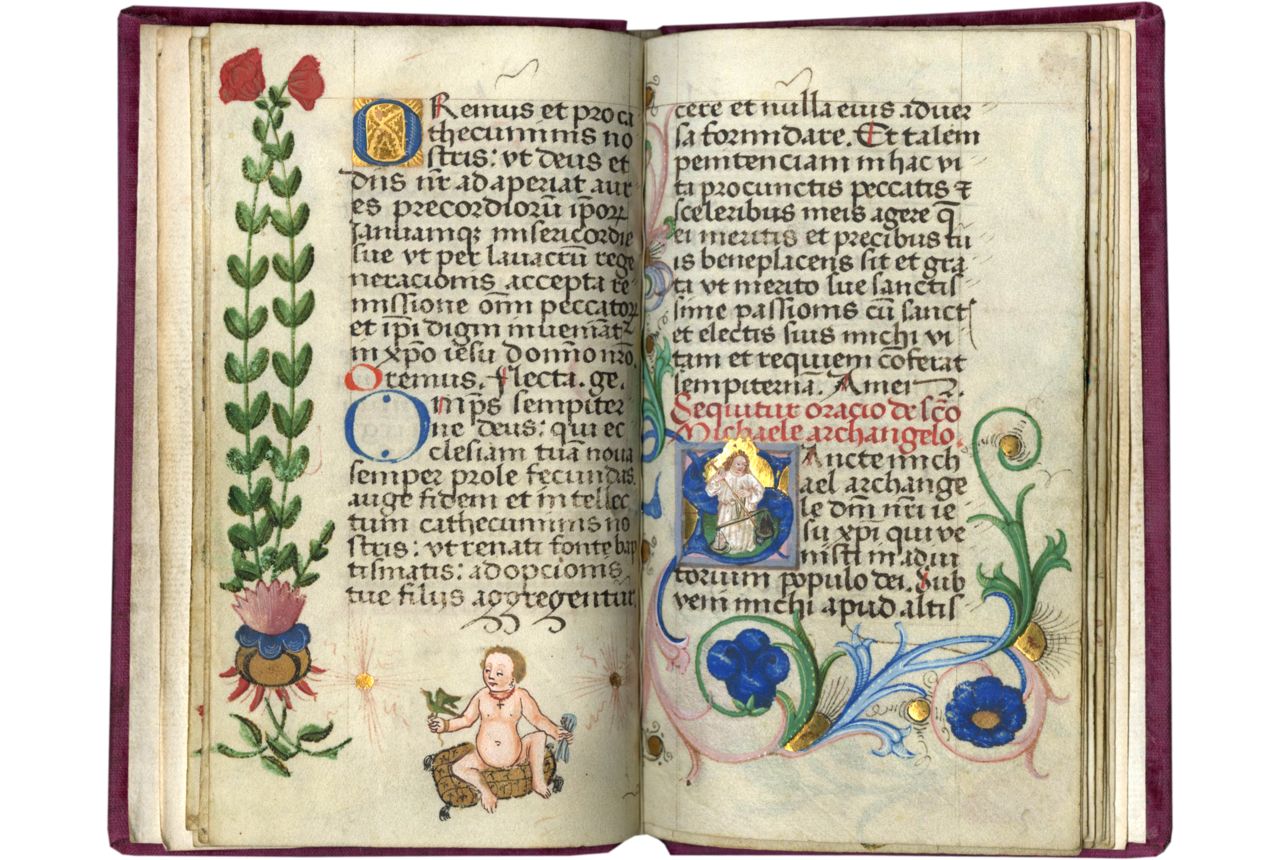 ORemus et pro ca
thecuminis no
stris: vt deus et
dn̄s nr̄ adaperiat aur
es precordiorū ip̄oꝝ
Januamqꝫ misericordie
sue vt per lauacrū rege
neracionis accepta re
missione om̄i peccatoꝝ
et ip̄i digni inueniāt᷑
in xp̄o iesu domīno nr̄o.
Oremus. flecta. ge.
Omp̄s sempiter
ne deus: qui ec
clesiam tuā noua
semper prole fecundas.
auge fidem et intellec
tum cathecuminis no
stris: vt renati fonte bap
tismatis: adopcionis
tue filijs aggregentur
cere et nulla eius aduer
sa formidare. Et talem
penitenciam in hac vi
ta pro cunctis peccatis ⁊
sceleribus meis agere q̄
ei meritis et precibus tu
is beneplacens sit et gra
ta vt merito sue sanctis
sime passionis cū sanct
et electis suis michi vi
tam et requiem cōferat
sempiternā. Amen.
Sequitur oracio de sc̄o
Michaele archangelo.
SAncte mich
ael archange
le dn̄i nr̄i ie
su xp̄i qui ve
nisti in adiu
torium populo dei. Sub
veni michi apud altis